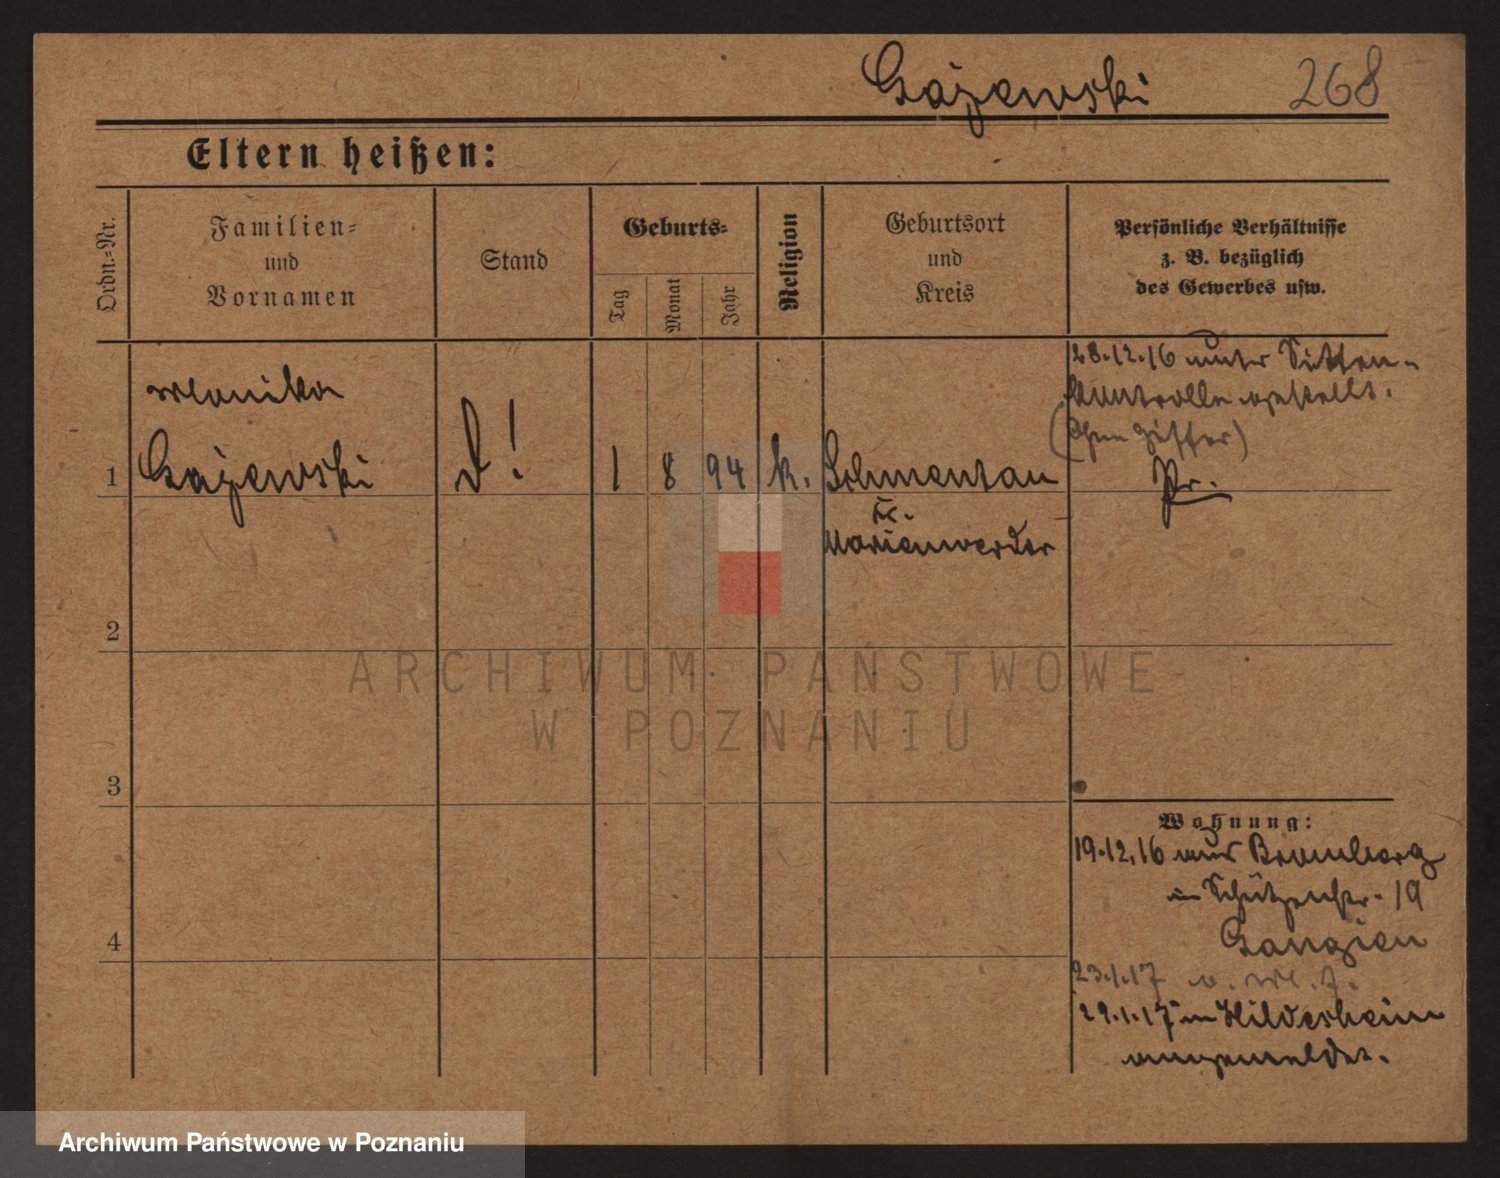 Gajewski 268
Eltern heißen:
Ordn.-Nr.
Familien-
und
Vornamen
Stand
Geburts-
Tag
Monat
Jahr
Religion
Geburtsort
und
Kreis
Persönliche Verhältnisse
z. B. bezüglich
des Gewerbes usw.
Monika
1 Gajewski
1 8 94 k.
Kr.
Marienwerder
28.12.16 unter Sitten-
kontrolle gestellt.
2
3
4
Wohnung:
19.12.16 aus Bromberg
in Schützenstr. 19
23.1.17
29.1.17 in Hildesheim
angemeldet.
ARCHIWUM PAŃSTWOWE
W POZNANIU
Archiwum Państwowe w Poznaniu